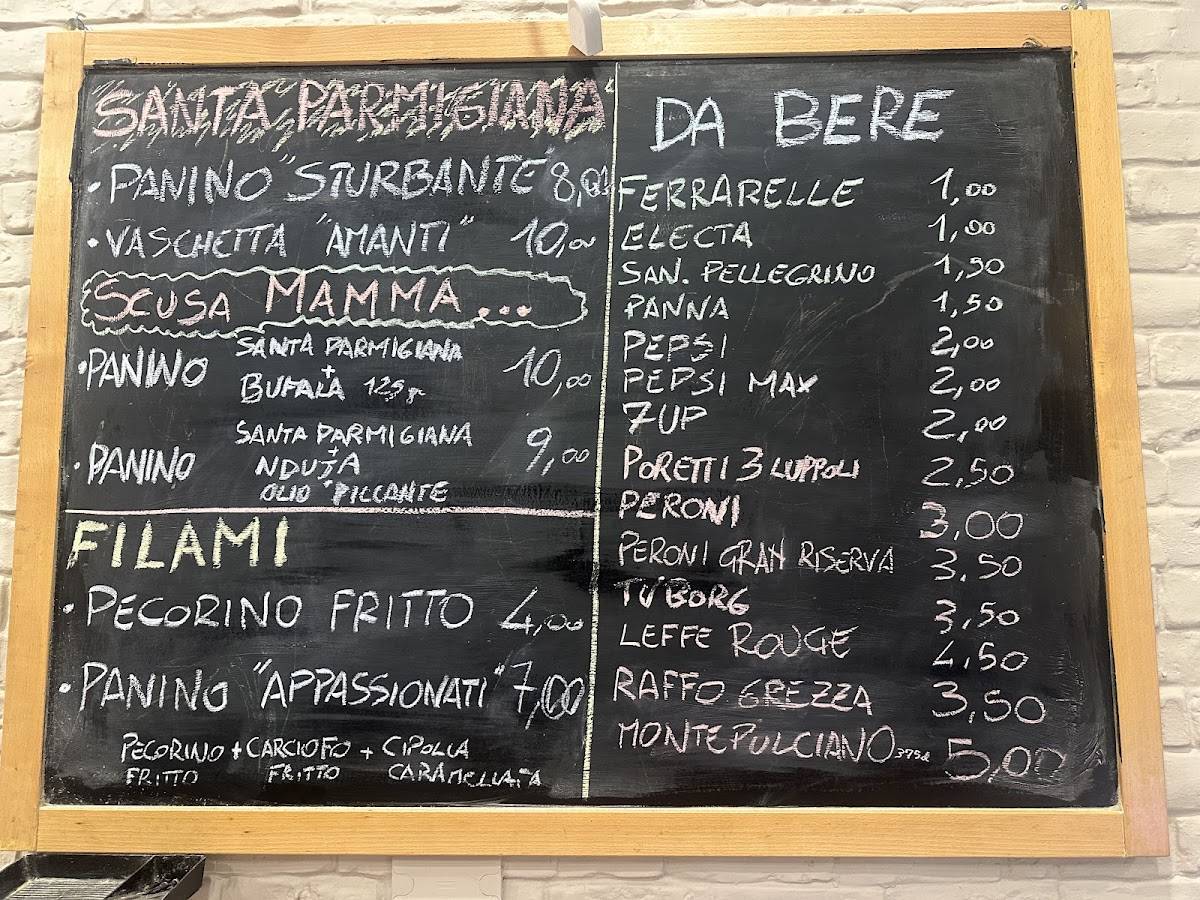 SANTA PARMIGIANA
• PANINO "STURBANTE" 8,00
• VASCHETTA "AMANTI" 10,00
SCUSA MAMMA...
• PANINO SANTA PARMIGIANA + BUFALA 125 gr 10,00
• PANINO SANTA PARMIGIANA + NDUJA OLIO PICCANTE 9,00
FILAMI
• PECORINO FRITTO 4,00
• PANINO "APPASSIONATI" 7,00
PECORINO + CARCIOFO + CIPOLLA
FRITTO FRITTO CARAMELLATA
DA BERE
FERRARELLE 1,00
ELECTA 1,00
SAN. PELLEGRINO 1,50
PANNA 1,50
PEPSI 2,00
PEPSI MAX 2,00
7UP 2,00
PORETTI 3 LUPPOLI 2,50
PERONI 3,00
PERONI GRAN RISERVA 3,50
TUBORG 3,50
LEFFE ROUGE 4,50
RAFFO GREZZA 3,50
MONTEPULCIANO 375cl 5,00